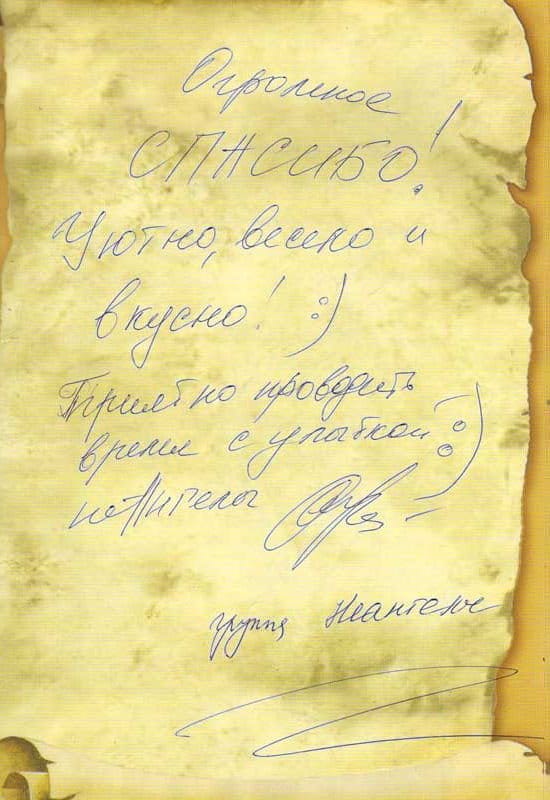 Огромное
СПАСИБО!
Уютно, весело и
вкусно! :)
Приятно проводить
время с улыбкой :)
неАнгелы
группа Неангелы